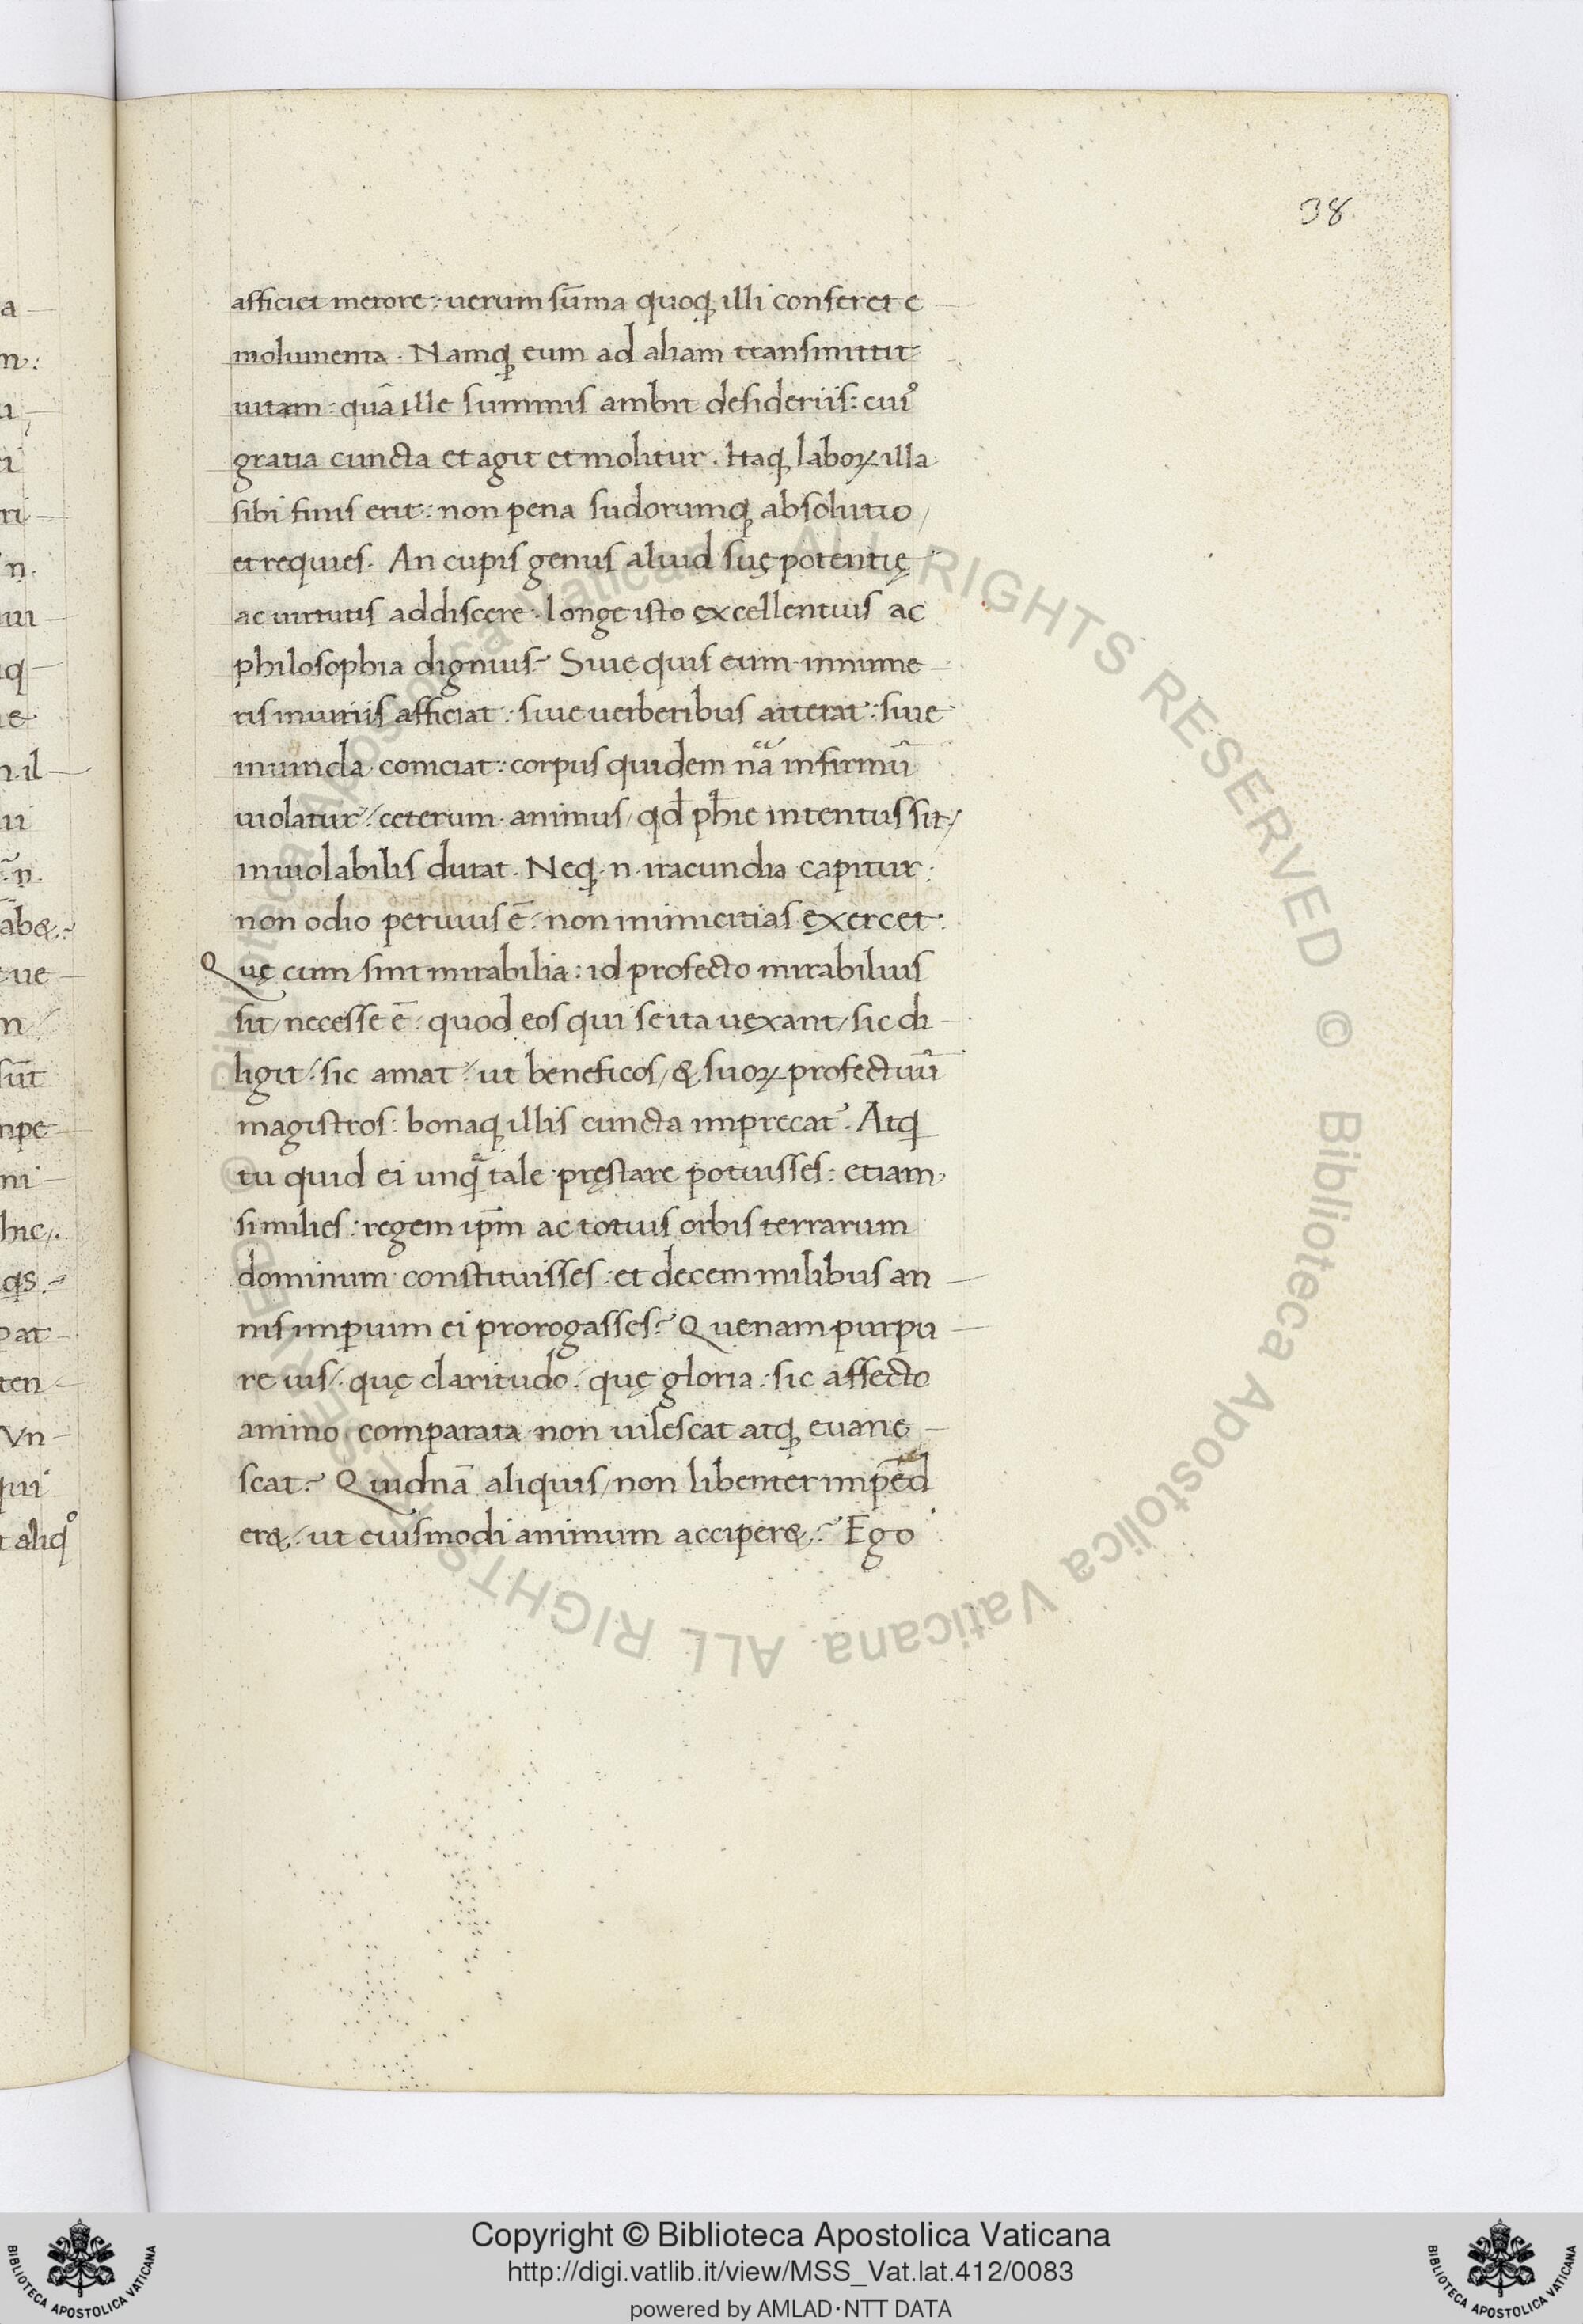 38
afficiet merore: uerum sūma quoq; illi conferet e-
molumenta. Namq; eum ad aliam transmittit
uitam: quā ille summis ambit desideriis: cuiꝰ
gratia cuncta et agit et molitur. Itaq; laboꝝ illa
sibi finis erit: non pena sudorumq; absolutio/
et requies. An cupis genus aliud suę potentię
ac uirtutis addiscere: longe isto excellentius ac
philosophia dignius? Siue quis eum innume-
ris iniuriis afficiat: siue uerberibus atterat: siue
in uincla coniciat: corpus quidem nā infirmū
uiolatur: ceterum animus/ qd̄ ph̄ie intentus sit/
inuiolabilis durat. Neq; n. iracundia capitur:
non odio peruius ē: non inimicitias exercet:
Quę cum sint mirabilia: id profecto mirabilius
sit/ necesse ē: quod eos qui se ita uexant/ sic di-
ligit: sic amat: ut beneficos/ & suoꝝ profectuū
magistros: bonaq; illis cuncta imprecat᷑. Atq;
tu quid ei unq̄ tale pręstare potuisses: etiam
si milies: regem ip̄m ac totius orbis terrarum
dominum constituisses: et decem milibus an-
nis imꝑium ei prorogasses? Quenam purpu-
re uis/ quę claritudo: quę gloria: sic affecto
animo comparata non uilescat atq; euane-
scat? Quidnā aliquis/ non libenter impēd
er&: ut eiusmodi animum acciper&? Ego
a-
m:
ri-
n.
ui-
q-
e
n.il-
ui
n.
āb&?
ue-
m/
sūt
mpe-
ni-
hic/.
qs.
pat-
ten-
Vn-
qui
t aliqͦ
© Biblioteca Apostolica Vaticana ALL RIGHTS RESERVED © Biblioteca Apostolica Vaticana ALL RIGHTS RESERVED
BIBLIOTECA APOSTOLICA VATICANA
Copyright © Biblioteca Apostolica Vaticana
http://digi.vatlib.it/view/MSS_Vat.lat.412/0083
powered by AMLAD·NTT DATA
BIBLIOTECA APOSTOLICA VATICANA